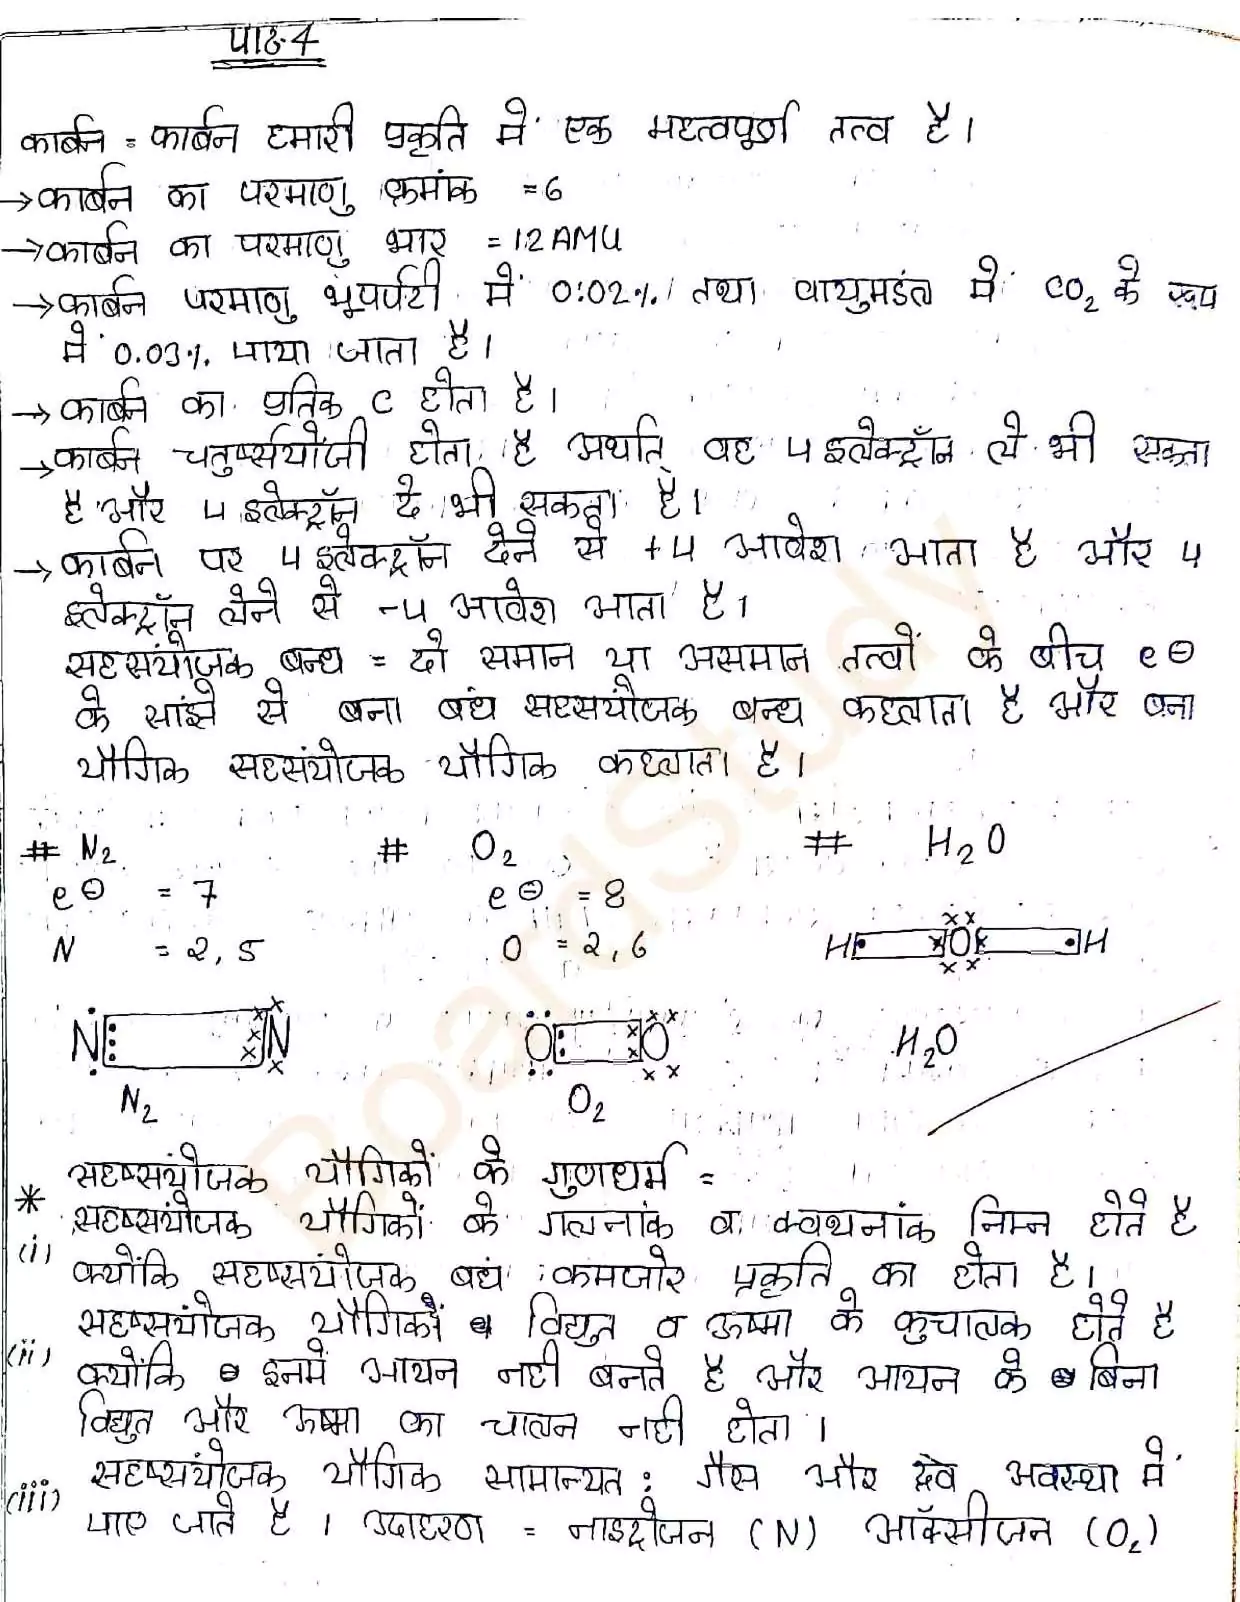 पाठ-4
कार्बन = कार्बन हमारी प्रकृति में एक महत्वपूर्ण तत्व है।
→कार्बन का परमाणु क्रमांक = 6
→कार्बन का परमाणु भार = 12 AMU
→कार्बन परमाणु भूपर्पटी में 0.02% तथा वायुमडंल में CO2 के रूप
में 0.03% पाया जाता है।
→कार्बन का प्रतिक C होता है।
→कार्बन चतुर्संयोजी होता है अर्थात् वह 4 इलेक्ट्रॉन ले भी सकता
है और 4 इलेक्ट्रॉन दे भी सकता है।
→कार्बन पर 4 इलेक्ट्रॉन देने से +4 आवेश आता है और 4
इलेक्ट्रॉन लेने से -4 आवेश आता है।
सहसंयोजक बन्ध = दो समान या असमान तत्वों के बीच e⊖
के सांझे से बना बंध सहसंयोजक बन्ध कहलाता है और बना
यौगिक सहसंयोजक यौगिक कहलाता है।
# N2 # O2 # H2O
e⊖ = 7 e⊖ = 8
N = 2, 5 O = 2, 6 H O H
N N O O H2O
N2 O2
* सहसंयोजक यौगिकों के गुणधर्म =
(i) सहसंयोजक यौगिकों के गलनांक व क्वथनांक निम्न होते है
क्योंकि सहसंयोजक बधं कमजोर प्रकृति का होता है।
(ii) सहसंयोजक यौगिकों विद्युत व ऊष्मा के कुचालक होते है
क्योंकि इनमें आयन नही बनते है और आयन के बिना
विद्युत और ऊष्मा का चालन नही होता।
(iii) सहसंयोजक यौगिक सामान्यत: गैस और द्रव अवस्था में
पाए जाते है। उदाहरण = नाइट्रोजन (N) ऑक्सीजन (O2)
BoardStudy